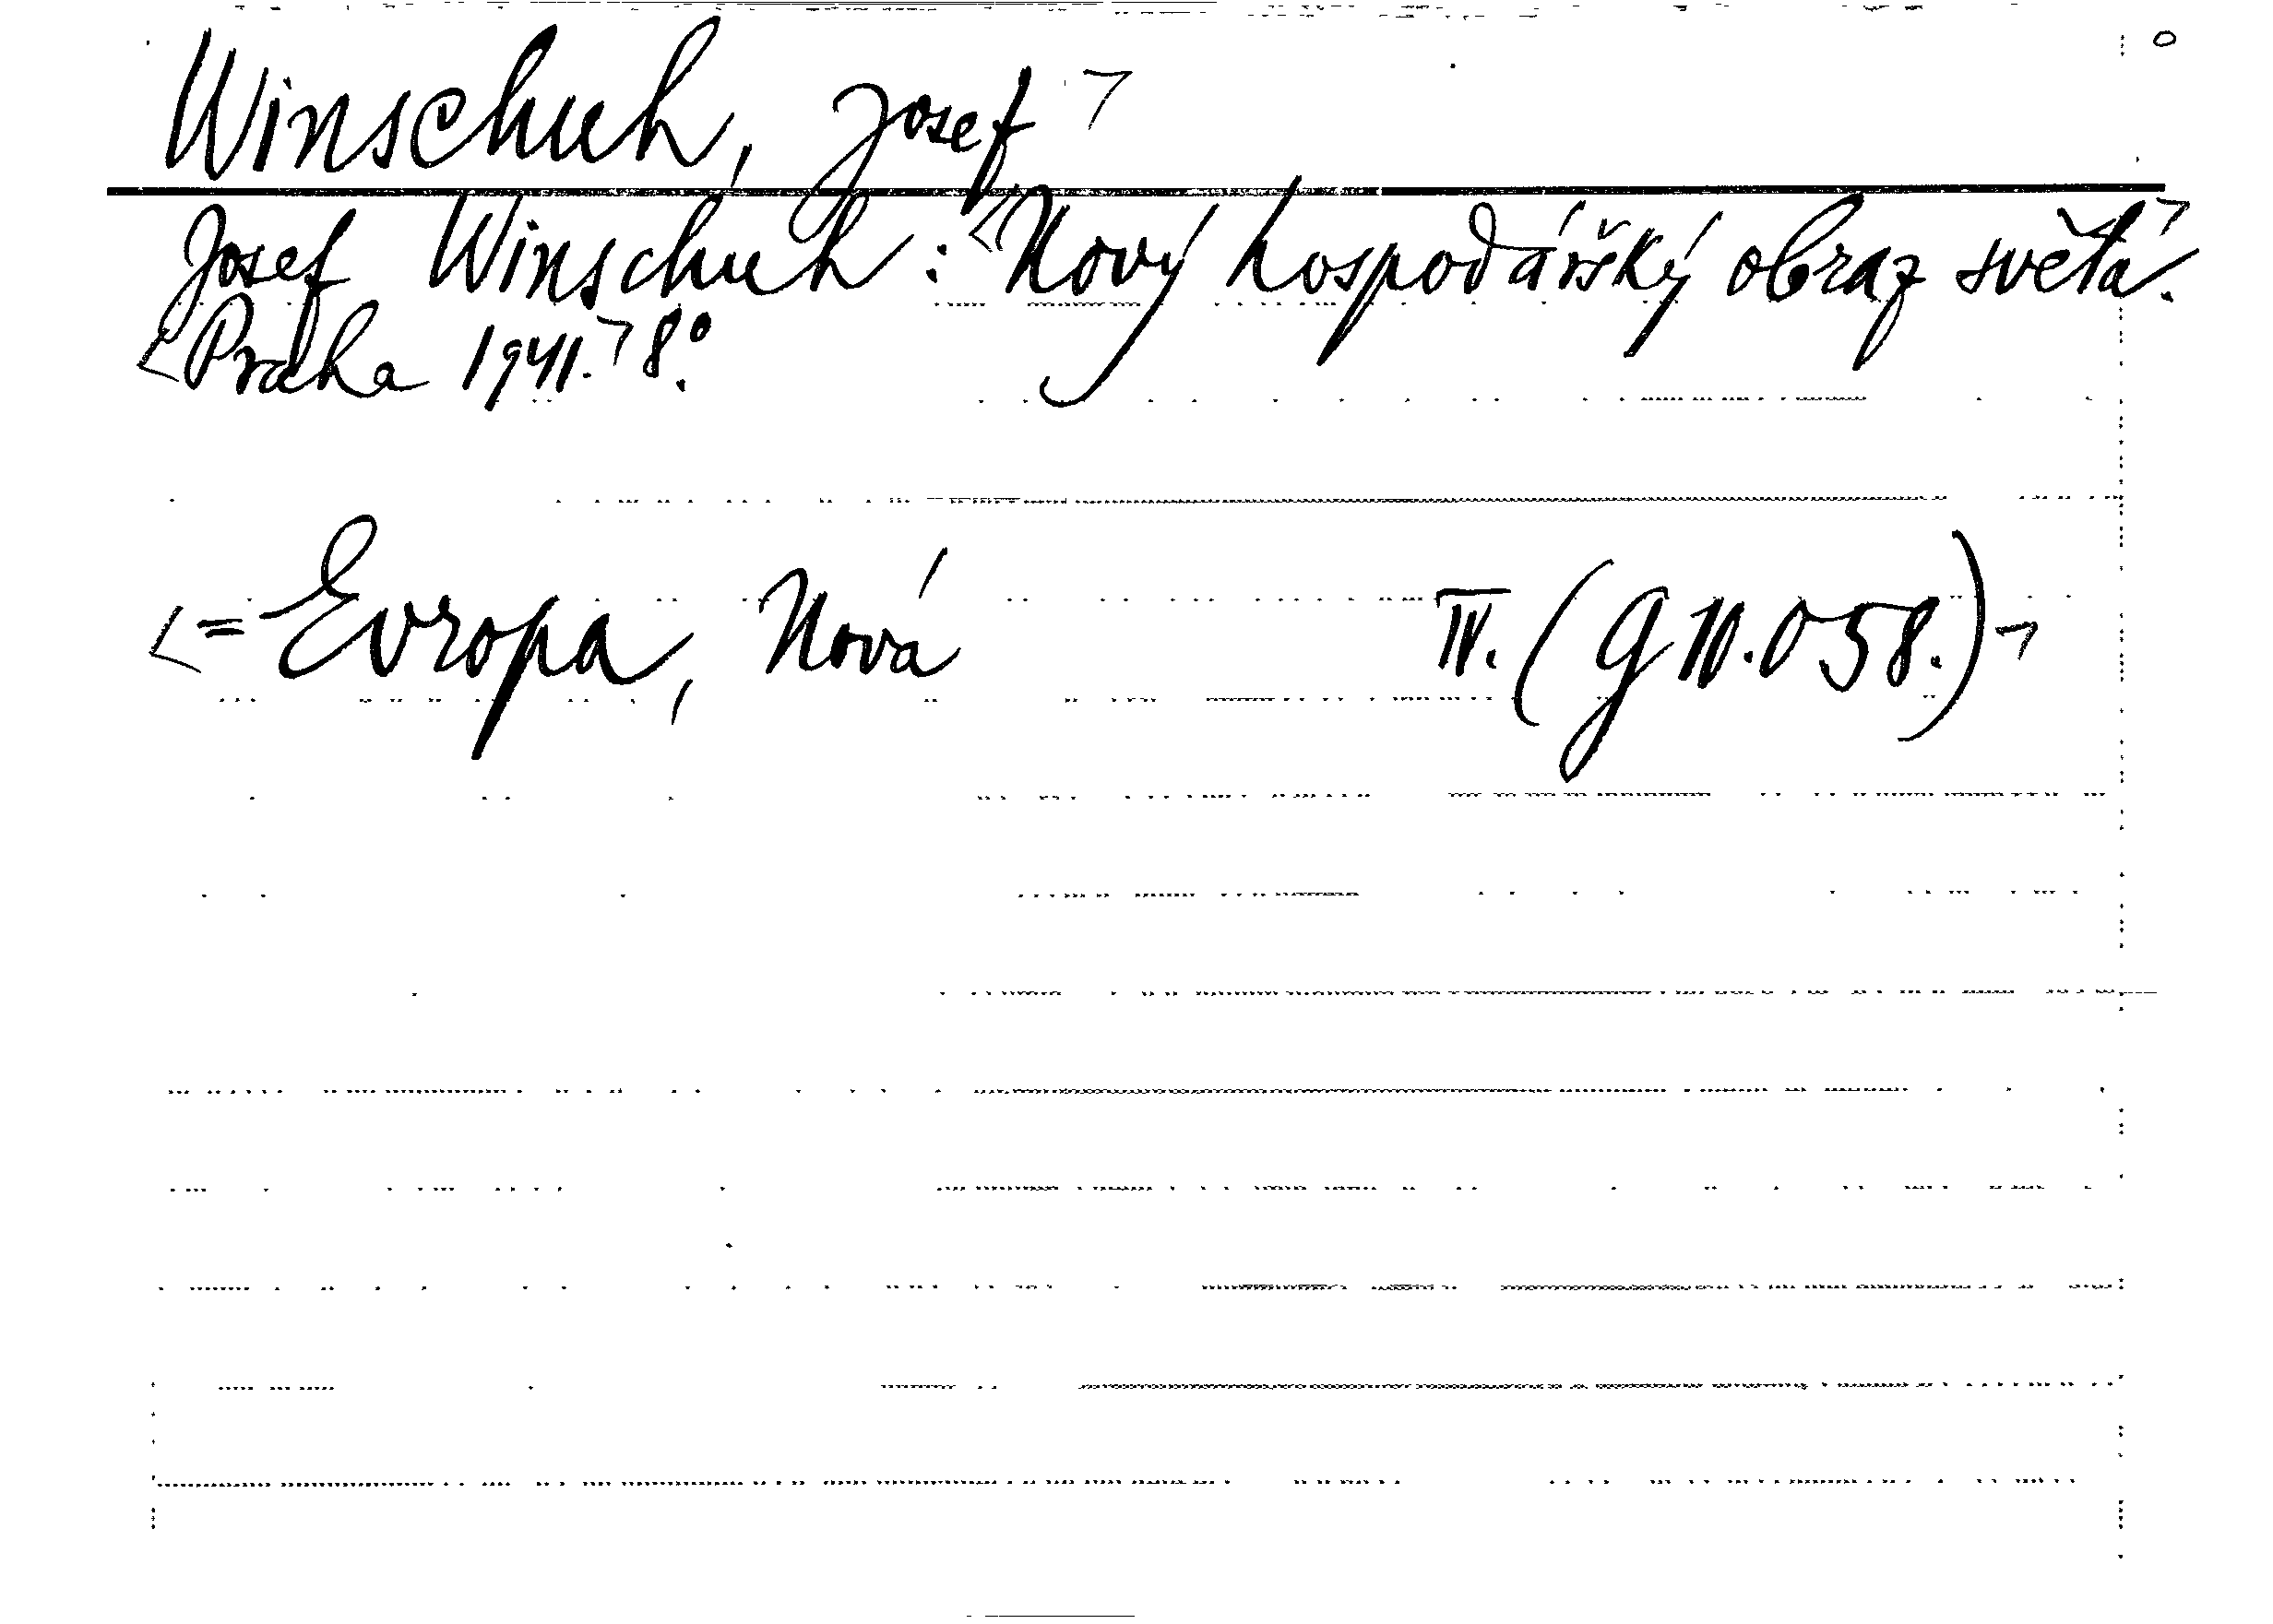 Winschuh, Josef ¬
Josef Winschuh: <Nový hospodářský obraz světa.¬
<Praha 1941.¬ 8°.
<= Evropa, Nová IV. (G 10.058.)¬